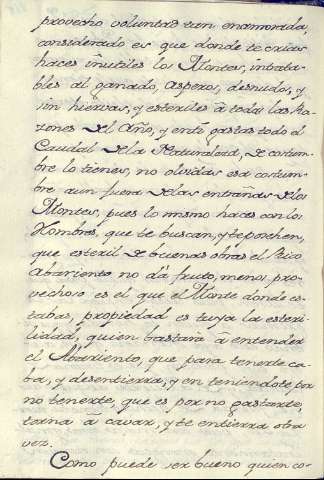 provecho voluntad tan enamorada,
considerado es que donde te crias
haces inutiles los Montes, intrata-
bles al ganado, asperos, desnudos, y
sin hiervas, y esteriles â todas las Sa-
zones del Año, y en ti gastas todo el
Caudal de la Naturaleza, de costum-
bre lo tienes, no olvidas esa costum-
bre aun fuera de las entrañas de los
Montes, pues lo mismo haces con los
Hombres, que te buscan, y te posehen,
que esteril de buenas obras el Rico
Abariento no dá fruto, menos pro-
vechoso es el que el Monte donde es-
tabas, propiedad es tuya la esteri-
lidad, quien bastará â entender
el Abariento, que para tenerte ca-
ba, y desentierra, y en teniendote por
no tenerte, que es por no gastarte,
torna â cavar, y te entierra otra
vez.
Como puede ser bueno quien co-